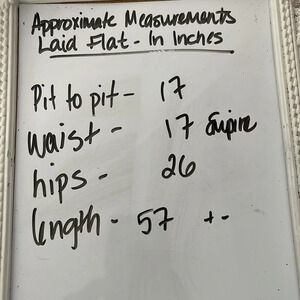 Approximate Measurements
Laid Flat - In Inches
Pit to pit - 17
waist - 17 Empire
hips - 26
length - 57 + -